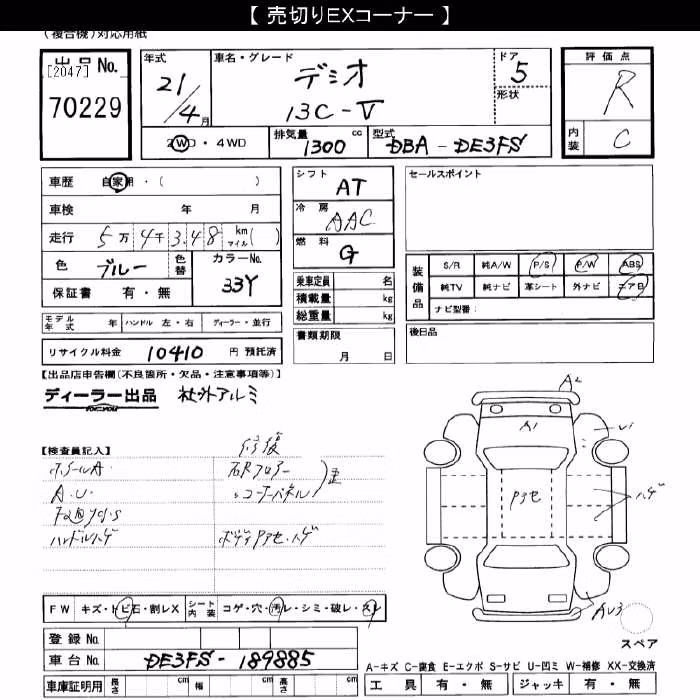 【 売切りEXコーナー 】
(複合機)対応用紙
出品 No.
[2047]
70229
年式
21/4月
車名・グレード
デミオ
13C-V
ドア
5
形状
評価点
R
内装
C
2WD・4WD
排気量
1300 cc
型式
DBA-DE3FS
車歴 自家用・( )
車検 年 月
走行 5万4千348 km マイル( )
色 ブルー 色替
カラーNo.
33Y
保証書 有・無
シフト
AT
冷房
AAC
燃料
G
乗車定員 名
積載量 kg
総重量 kg
セールスポイント
装備品
S/R 純A/W P/S P/W ABS
純TV 純ナビ 革シート 外ナビ エアB
ナビ型番:
モデル年式 年 ハンドル 左・右 ディーラー・並行
リサイクル料金 10410 円 預託済
書類期限
月 日
後日品
【出品店申告欄(不良箇所・欠品・注意事項等)】
ディーラー出品 社外アルミ
【検査員記入】
修復
A.U.
ハンドルハゲ
A2
A1
Pアセ
ハゲ
AU3
FW キズ・トビ石・割レX シート内装 コゲ・穴・汚レ・シミ・破レ・スレ
スペア
登録 No.
車台 No. DE3FS-189885
A-キズ C-腐食 E-エクボ S-サビ U-凹ミ W-補修 XX-交換済
車庫証明用 長さ cm 幅 cm 高さ cm
工具 有・無 ジャッキ 有・無